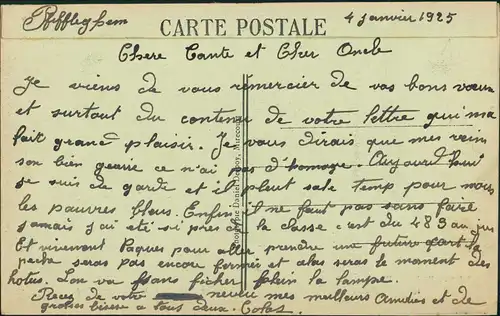 Pfiffligheim
CARTE POSTALE
4 Janvier 1925
Chere Tante et Cher Oncle
Je viens de vous remercier de vos bons vœux
et surtout du contenu de votre lettre qui ma
fait grand plaisir. Je vous dirais que mes rein
son bien guerie ce n'ai pas d'homage. Aujourd'hui
je suis de garde et il pleut sale temp pour nous
les pauvres bleus. Enfin il ne faut pas sans faire
jamais j'ai été si pres de la classe c'est du 483 au jus
Et vivement Paques pour aller prendre une
peche seras pas encore fermée et alors seras le moment des
Lon va sans ficher plein la lampe.
Recevez de votre neveu mes meilleurs Amitiés et de
grosses bisses a tous deux. Colas.